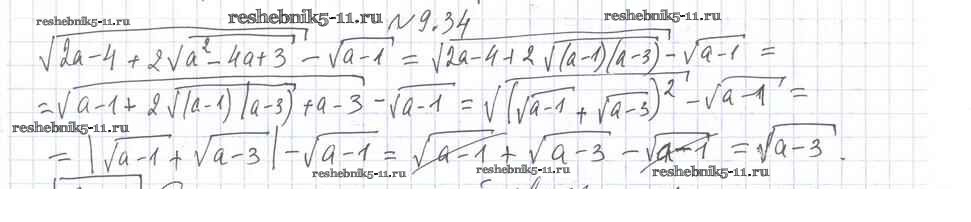 reshebnik5-11.ru reshebnik5-11.ru №9.34 reshebnik5-11.ru
√(2a-4+2√(a²-4a+3)) - √(a-1) = √(2a-4+2√((a-1)(a-3))) - √(a-1) =
= √(a-1+2√((a-1)(a-3))+a-3) - √(a-1) = √((√(a-1)+√(a-3))²) - √(a-1) =
reshebnik5-11.ru
= |√(a-1)+√(a-3)| - √(a-1) = √(a-1)+√(a-3) - √(a-1) = √(a-3).
reshebnik5-11.ru reshebnik5-11.ru